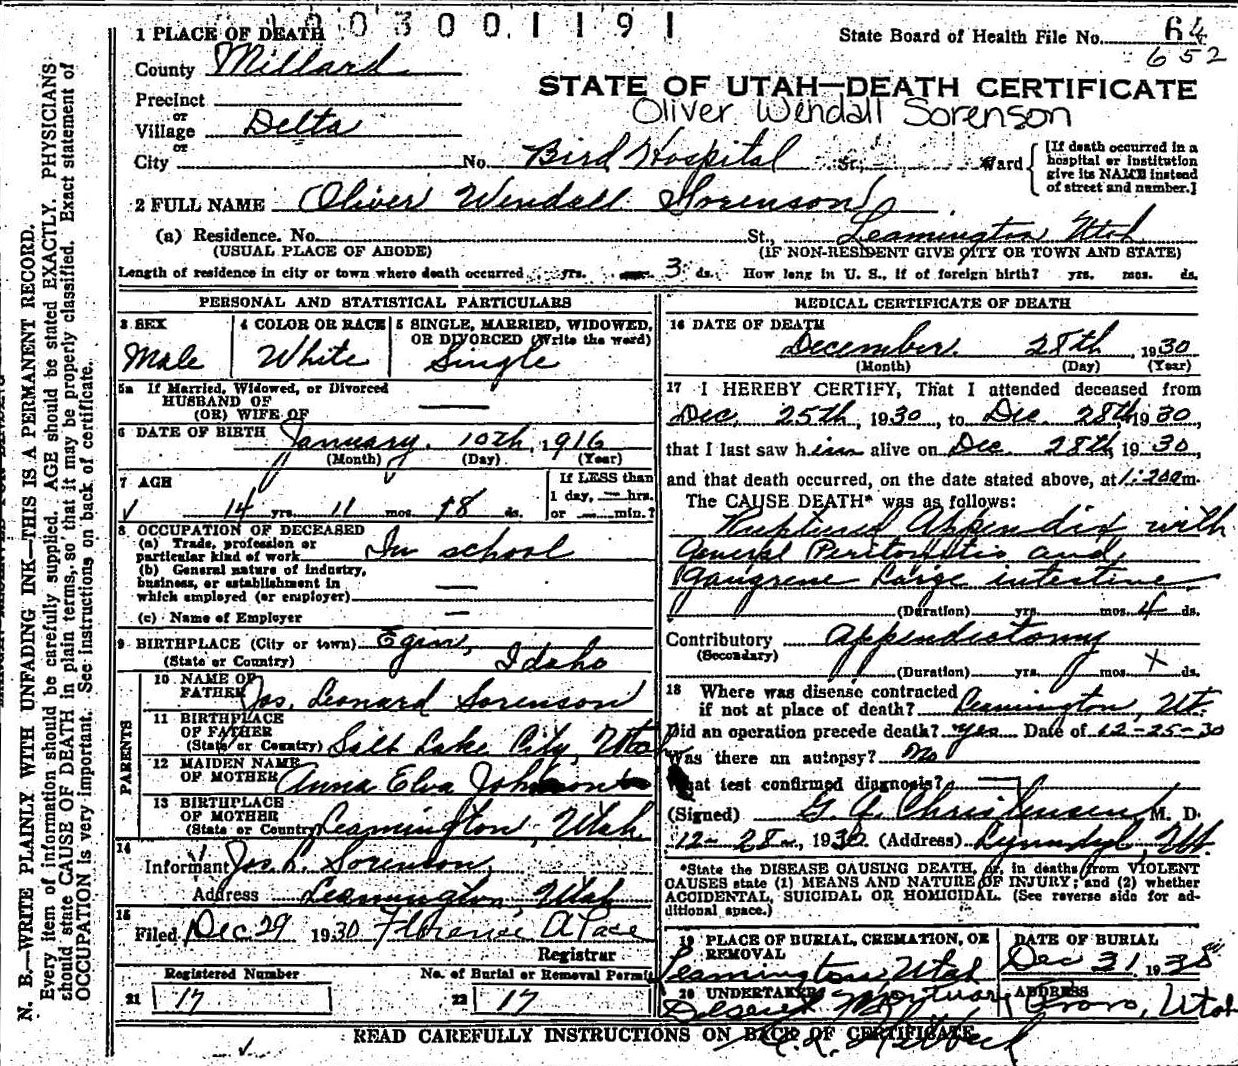 1003001191
1 PLACE OF DEATH
State Board of Health File No. 64
652
County Millard
STATE OF UTAH—DEATH CERTIFICATE
Precinct
or
Oliver Wendall Sorenson
Village Delta
or
City No. Bird Hospital St., Ward
[If death occurred in a hospital or institution give its NAME instead of street and number.]
2 FULL NAME Oliver Wendall Sorenson
(a) Residence. No. St., Leamington Utah
(USUAL PLACE OF ABODE) (IF NON-RESIDENT GIVE CITY OR TOWN AND STATE)
Length of residence in city or town where death occurred yrs. mos. 3 ds. How long in U. S., if of foreign birth? yrs. mos. ds.
PERSONAL AND STATISTICAL PARTICULARS
3 SEX
Male
4 COLOR OR RACE
White
5 SINGLE, MARRIED, WIDOWED,
OR DIVORCED (Write the word)
Single
5a If Married, Widowed, or Divorced
HUSBAND OF
(OR) WIFE OF —
6 DATE OF BIRTH January 10th, 1916
(Month) (Day) (Year)
7 AGE
14 yrs. 11 mos. 18 ds.
If LESS than
1 day, — hrs.
or — min.?
8 OCCUPATION OF DECEASED
(a) Trade, profession or
particular kind of work In school
(b) General nature of industry,
business, or establishment in
which employed (or employer) —
(c) Name of Employer —
9 BIRTHPLACE (City or town) Egin,
(State or Country) Idaho
PARENTS
10 NAME OF
FATHER Jos. Leonard Sorenson
11 BIRTHPLACE
OF FATHER
(State or Country) Salt Lake City, Utah
12 MAIDEN NAME
OF MOTHER Anna Elva Johnson
13 BIRTHPLACE
OF MOTHER
(State or Country) Leamington, Utah
14
Informant Jos. L. Sorenson,
Address Leamington, Utah
15
Filed Dec 29 1930 Florence A Pace
Registrar
Registered Number
21 17
No. of Burial or Removal Permit
22 17
MEDICAL CERTIFICATE OF DEATH
16 DATE OF DEATH
December 28th, 1930
(Month) (Day) (Year)
17 I HEREBY CERTIFY, That I attended deceased from
Dec. 25th, 1930, to Dec. 28th, 1930,
that I last saw him alive on Dec. 28th, 1930,
and that death occurred, on the date stated above, at 1:20am.
The CAUSE DEATH* was as follows:
Ruptured Appendix with
General Peritonitis and
Gangrene Large intestine
(Duration) yrs. mos. 4 ds.
Contributory Appendectomy
(Secondary)
(Duration) yrs. mos. x ds.
18 Where was disease contracted
if not at place of death? Leamington, Ut.
Did an operation precede death? Yes Date of 12-25-30
Was there an autopsy? No
What test confirmed diagnosis? —
(Signed) G. A. Christensen, M. D.
12-28-, 1930 (Address) Lynndyl, Ut.
*State the DISEASE CAUSING DEATH, or, in deaths from VIOLENT
CAUSES state (1) MEANS AND NATURE OF INJURY; and (2) whether
ACCIDENTAL, SUICIDAL OR HOMICIDAL. (See reverse side for ad-
ditional space.)
19 PLACE OF BURIAL, CREMATION, OR
REMOVAL
Leamington, Utah
DATE OF BURIAL
Dec 31 1930
20 UNDERTAKER
Deseret Mortuary
ADDRESS
Provo, Utah
READ CAREFULLY INSTRUCTIONS ON BACK OF CERTIFICATE
N. B.—WRITE PLAINLY WITH UNFADING INK—THIS IS A PERMANENT RECORD.
Every item of information should be carefully supplied. AGE should be stated EXACTLY. PHYSICIANS
should state CAUSE OF DEATH in plain terms, so that it may be properly classified. Exact statement of
OCCUPATION is very important. See instructions on back of certificate.